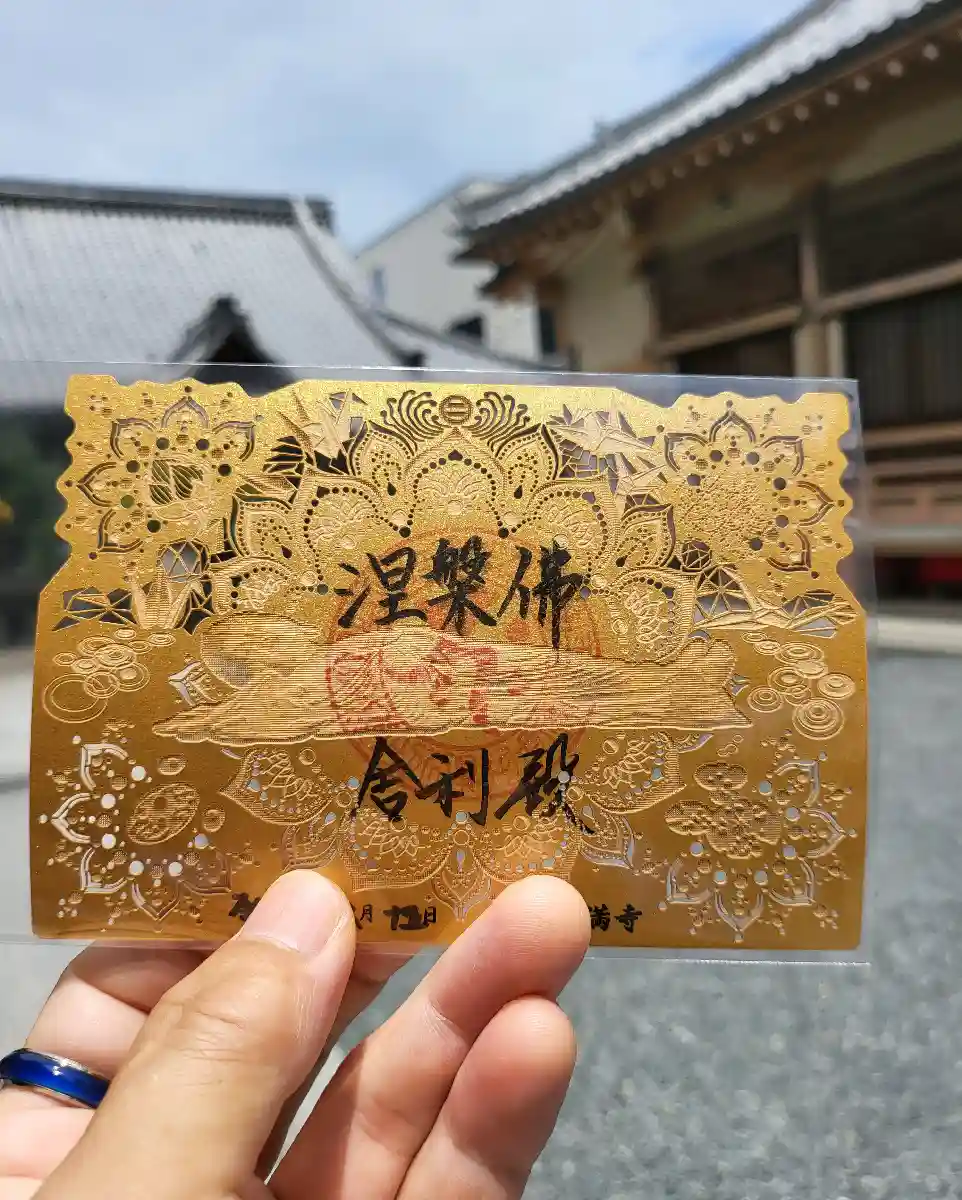 涅槃佛
舎利殿
月 十二日
満寺